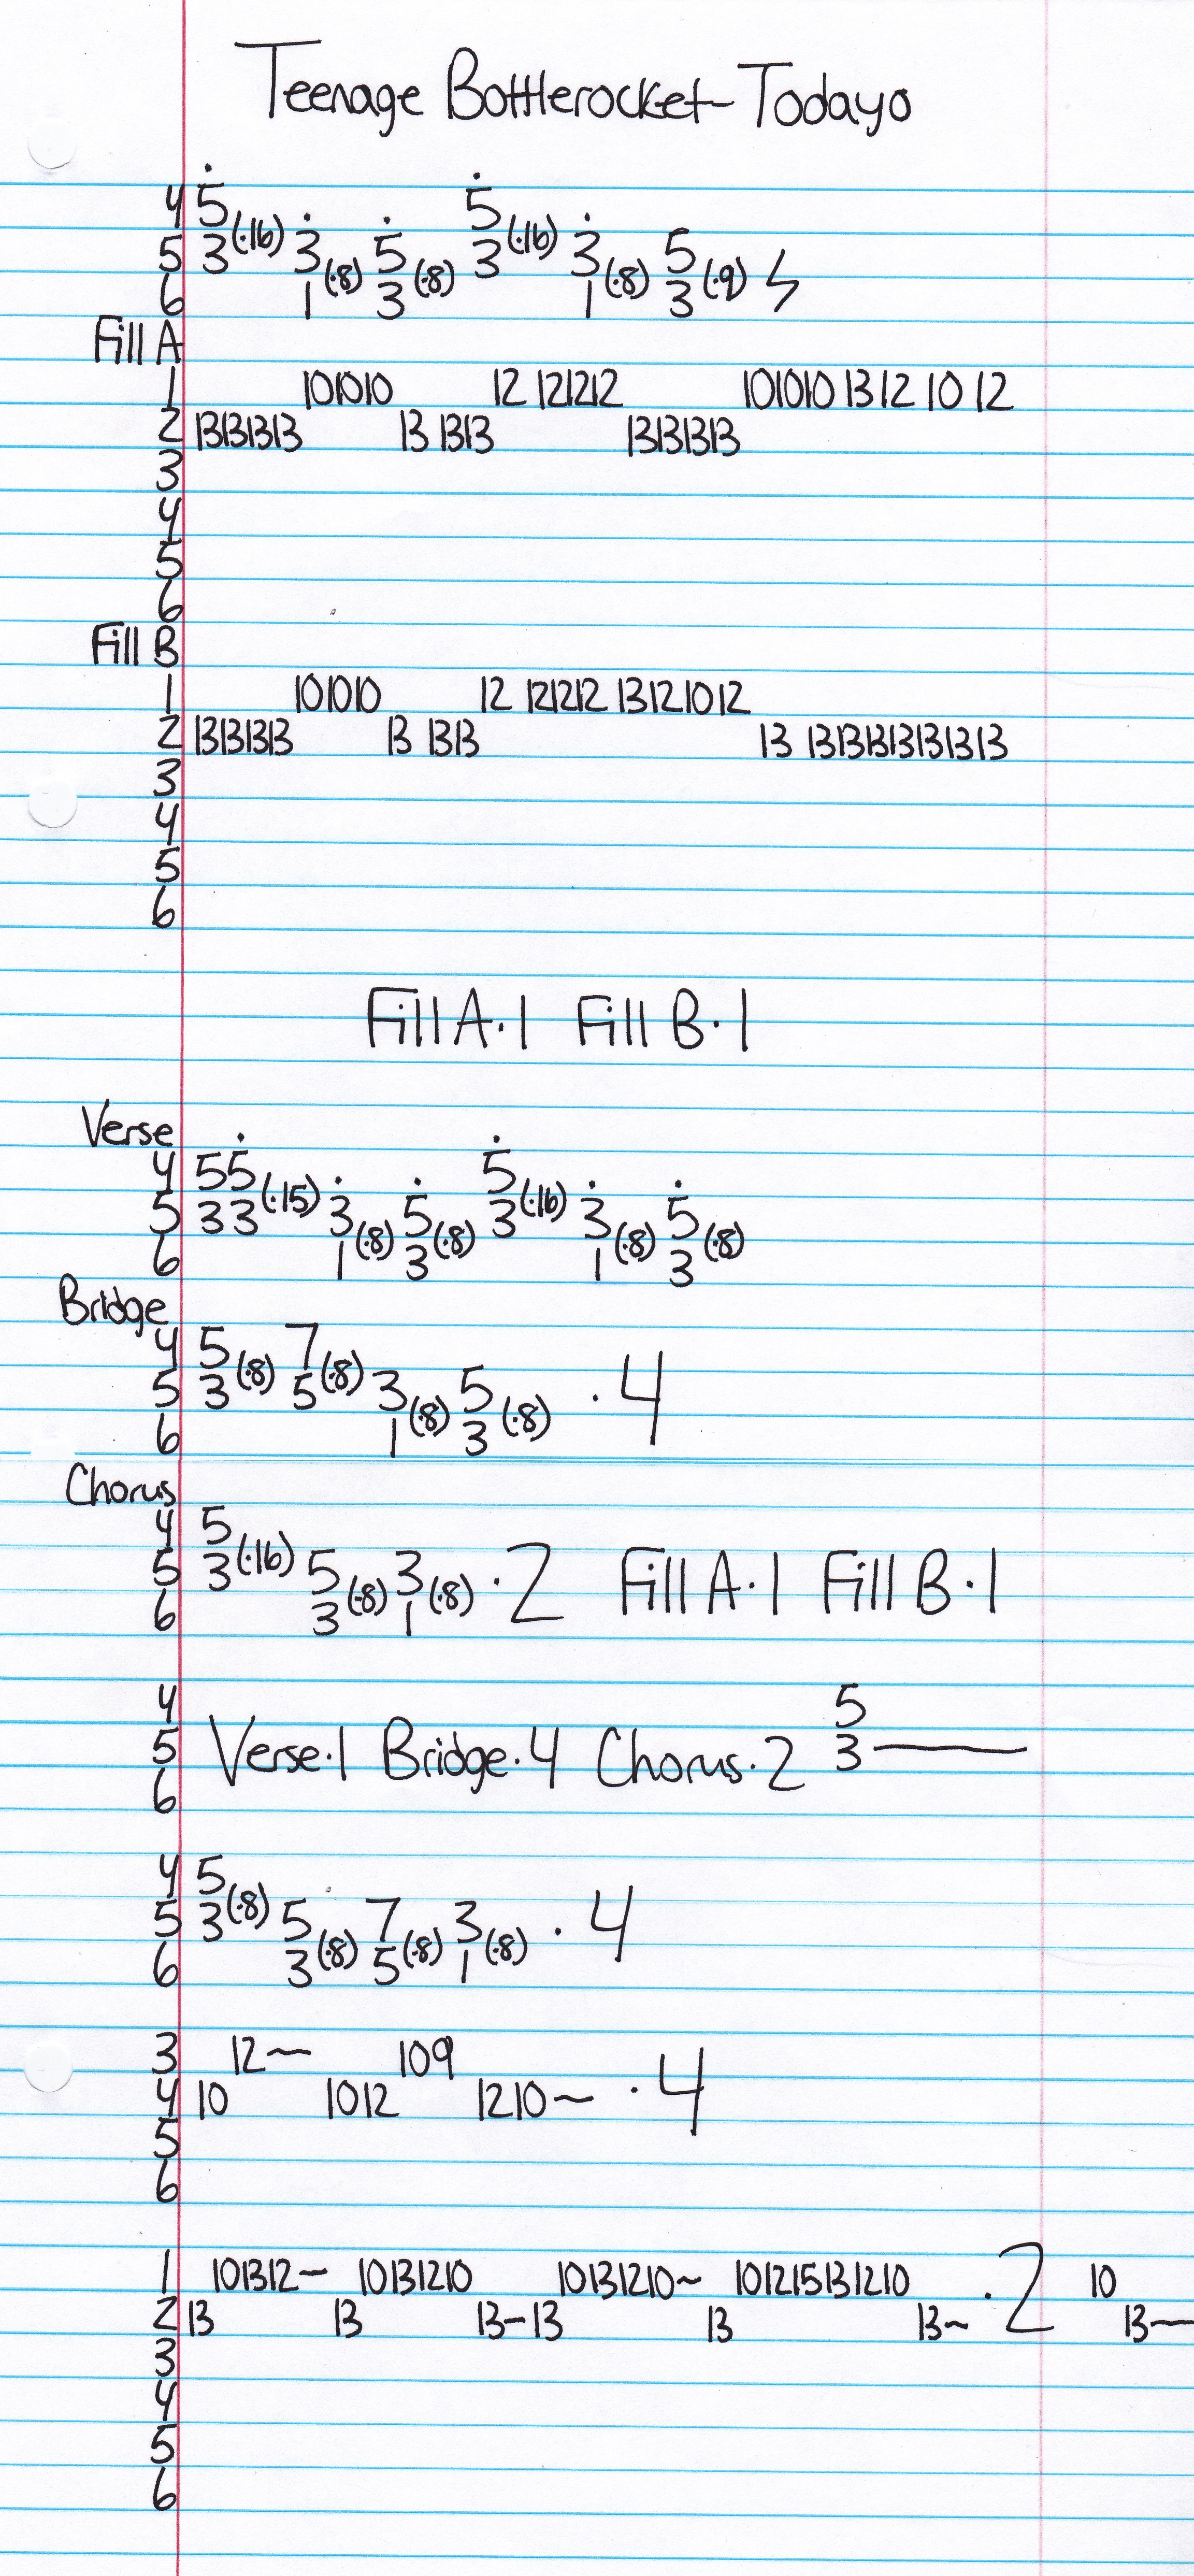 Teenage Bottlerocket-Todayo
4 5 5
5 3(·16) 3 5 3(·16) 3 5
6 1(·8) 3(·8) 1(·8) 3(·9)
Fill A
1 101010 12 121212 101010 13 12 10 12
2 13131313 13 1313 13131313
3
4
5
6
Fill B
1 101010 12 121212 13121012
2 13131313 13 1313 13 1313131313131313
3
4
5
6
Fill A·1 Fill B·1
Verse
4 55 5
5 33(·15) 3 5 3(·16) 3 5
6 1(·8) 3(·8) 1(·8) 3(·8)
Bridge
4 5 7
5 3(·8) 5(·8) 3 5 ·4
6 1(·8) 3(·8)
Chorus
4 5
5 3(·16) 5 3 ·2 Fill A·1 Fill B·1
6 3(·8) 1(·8)
4 5
5 Verse·1 Bridge·4 Chorus·2 3
6
4 5
5 3(·8) 5 7 3 ·4
6 3(·8) 5(·8) 1(·8)
3 12~ 109
4 10 1012 1210~ ·4
5
6
1 101312~ 10131210 10131210~ 101215131210 ·2 10
2 13 13 13-13 13 13~ 13~
3
4
5
6